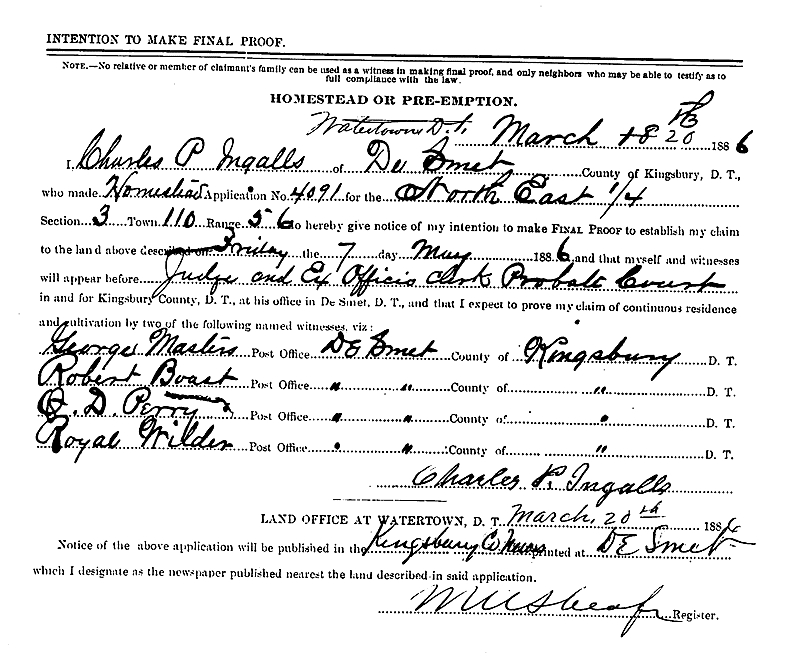 INTENTION TO MAKE FINAL PROOF.
NOTE.—No relative or member of claimant's family can be used as a witness in making final proof, and only neighbors who may be able to testify as to
full compliance with the law.
HOMESTEAD OR PRE-EMPTION.
Watertown D.T. March 18 20 1886
I, Charles P Ingalls of De Smet County of Kingsbury, D. T.,
who made Homestead Application No. 4091 for the North East 1/4
Section 3 Town 110 Range 56 do hereby give notice of my intention to make FINAL PROOF to establish my claim
to the land above described on Friday the 7 day May 1886, and that myself and witnesses
will appear before Judge and Ex Officio Clerk Probate Court
in and for Kingsbury County, D. T., at his office in De Smet, D. T., and that I expect to prove my claim of continuous residence
and cultivation by two of the following named witnesses, viz:
George Masters Post Office DE Smet County of Kingsbury D. T.
Robert Boast Post Office " " County of " D. T.
O. D. Perry Post Office " " County of " D. T.
Royal Wilder Post Office " " County of " D. T.
Charles P. Ingalls
LAND OFFICE AT WATERTOWN, D. T. March, 20th 1886
Notice of the above application will be published in the Kingsbury Co News printed at DE Smet
which I designate as the newspaper published nearest the land described in said application.
Register.